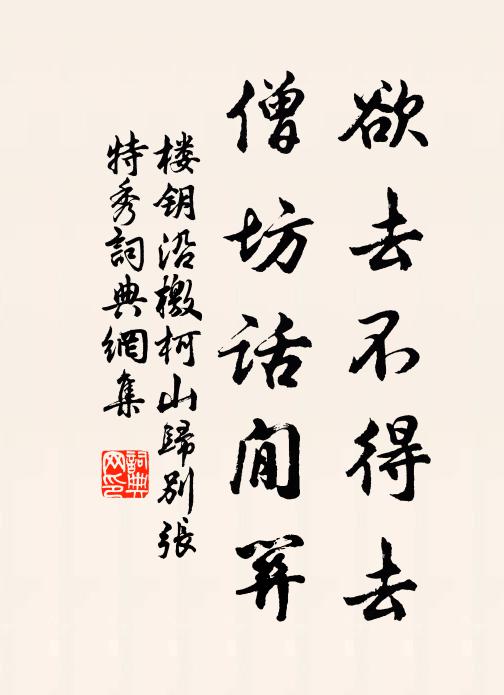 欲去不得去
僧坊話閒
楼钥沿檄柯山歸别張
特秀詞典網集
詞典
网印